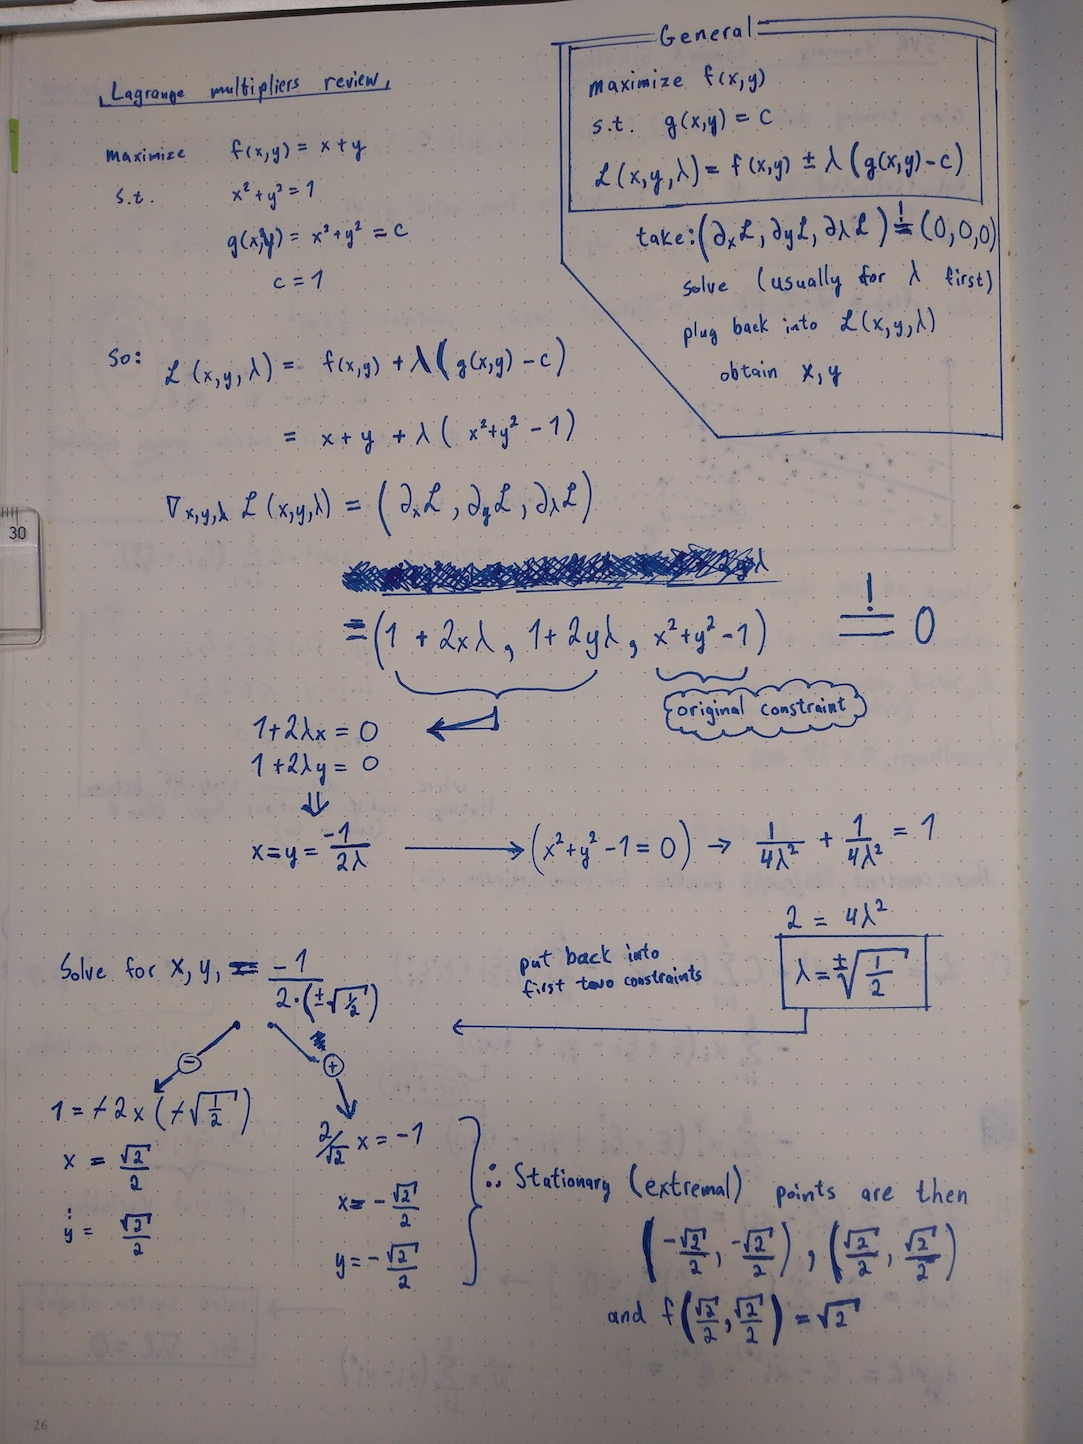 Lagrange multipliers review
maximize f(x,y) = x+y
s.t. x²+y²=1
g(x,y) = x²+y² = c
c = 1
General
maximize f(x,y)
s.t. g(x,y) = c
ℒ(x,y,λ) = f(x,y) ± λ(g(x,y)-c)
take: (∂xℒ, ∂yℒ, ∂λℒ) =! (0,0,0)
solve (usually for λ first)
plug back into ℒ(x,y,λ)
obtain x,y
So: ℒ(x,y,λ) = f(x,y) + λ(g(x,y) - c)
= x+y + λ(x²+y² - 1)
∇x,y,λ ℒ(x,y,λ) = (∂xℒ, ∂yℒ, ∂λℒ)
= (1 + 2xλ, 1 + 2yλ, x²+y²-1) =! 0
original constraint
1+2λx = 0
1+2λy = 0
⇓
x=y= -1/2λ → (x²+y²-1=0) → 1/4λ² + 1/4λ² = 1
2 = 4λ²
λ = ±√(1/2)
put back into
first two constraints
Solve for x, y, = -1/2·(±√(1/2))
⊖
1 = -2x(-√(1/2))
x = √2/2
y = √2/2
⊕
2/√2 x = -1
x = -√2/2
y = -√2/2
∴ Stationary (extremal) points are then
(-√2/2, -√2/2), (√2/2, √2/2)
and f(√2/2, √2/2) = √2
30
26